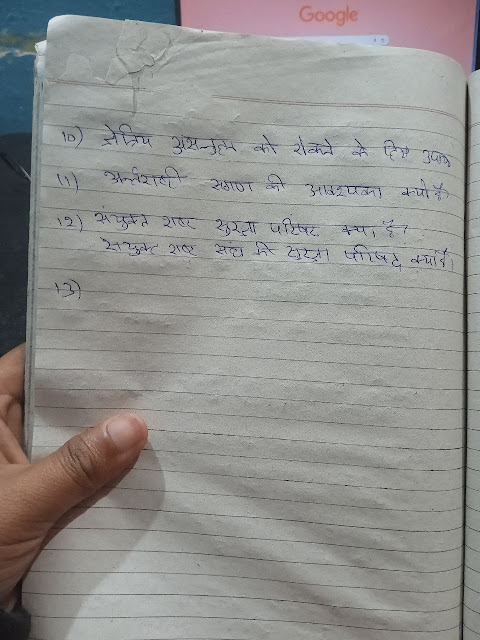 Google
10) क्षेत्रिय असन्तुलन को रोकने के लिए उपाय
11) अर्न्तराष्ट्री संगठन की आवश्यकता क्यों है?
12) संयुक्त राष्ट सुरक्षा परिषद क्या है?
संयुक्त राष्ट संघ की सुरक्षा परिषद क्या है।
13)